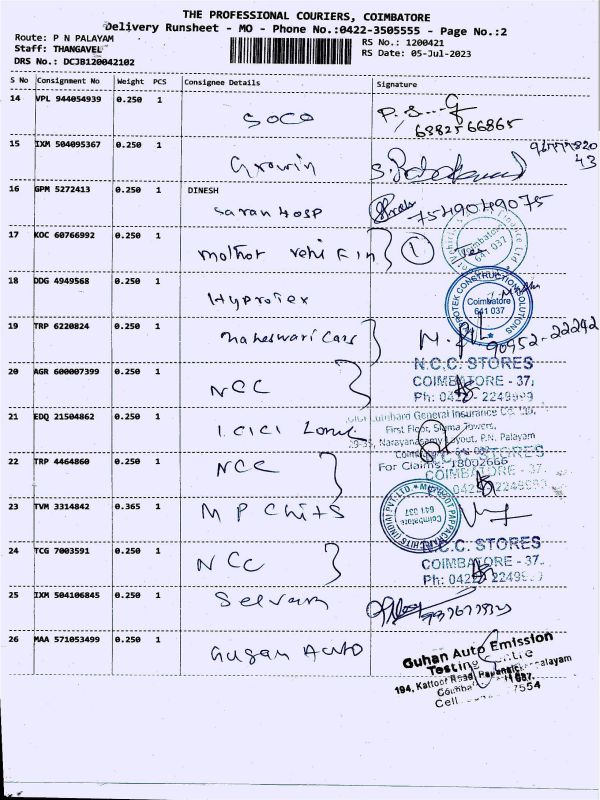 THE PROFESSIONAL COURIERS, COIMBATORE
Delivery Runsheet - MO - Phone No.:0422-3505555 - Page No.:2
Route: P N PALAYAM
Staff: THANGAVEL
DRS No.: DCJB120042102
RS No.: 1200421
RS Date: 05-Jul-2023
S No Consignment No Weight PCS Consignee Details Signature
14 VPL 944054939 0.250 1
SOCO
6382566865
15 IXM 504095367 0.250 1
Growin
16 GPM 5272413 0.250 1 DINESH
Saran Hosp 7549049075
17 KOC 60766992 0.250 1
mothot vehi Fin 1
Coimbatore
641 037
18 DDG 4949568 0.250 1
Hyprotex
CONSTRUCTION SOLUTIONS
Coimbatore
641 037
19 TRP 6220824 0.250 1
maheswari Cars
90952-22242
20 AGR 600007399 0.250 1
NCC
N.C.C. STORES
COIMBATORE - 37.
Ph: 0422- 2249999
21 EDQ 21504862 0.250 1
ICICI Lomb
General Insurance Co. Ltd.,
First Floor, Sigma Towers,
Narayanasamy Layout, P.N. Palayam
For Claims: 18002666
22 TRP 4464860 0.250 1
NCC
STORES
COIMBATORE - 37.
23 TVM 3314842 0.365 1
M P Chits
CHITS (INDIA) PVT.LTD.
Coimbatore
641 037
24 TCG 7003591 0.250 1
NCC
N.C.C. STORES
COIMBATORE - 37.
Ph: 0422
25 IXM 504106845 0.250 1
Selvam
26 MAA 571053499 0.250 1
Gugan Auto
Guhan Auto Emission
Testing Centre
194, Kattoor Road,
Cell 7554